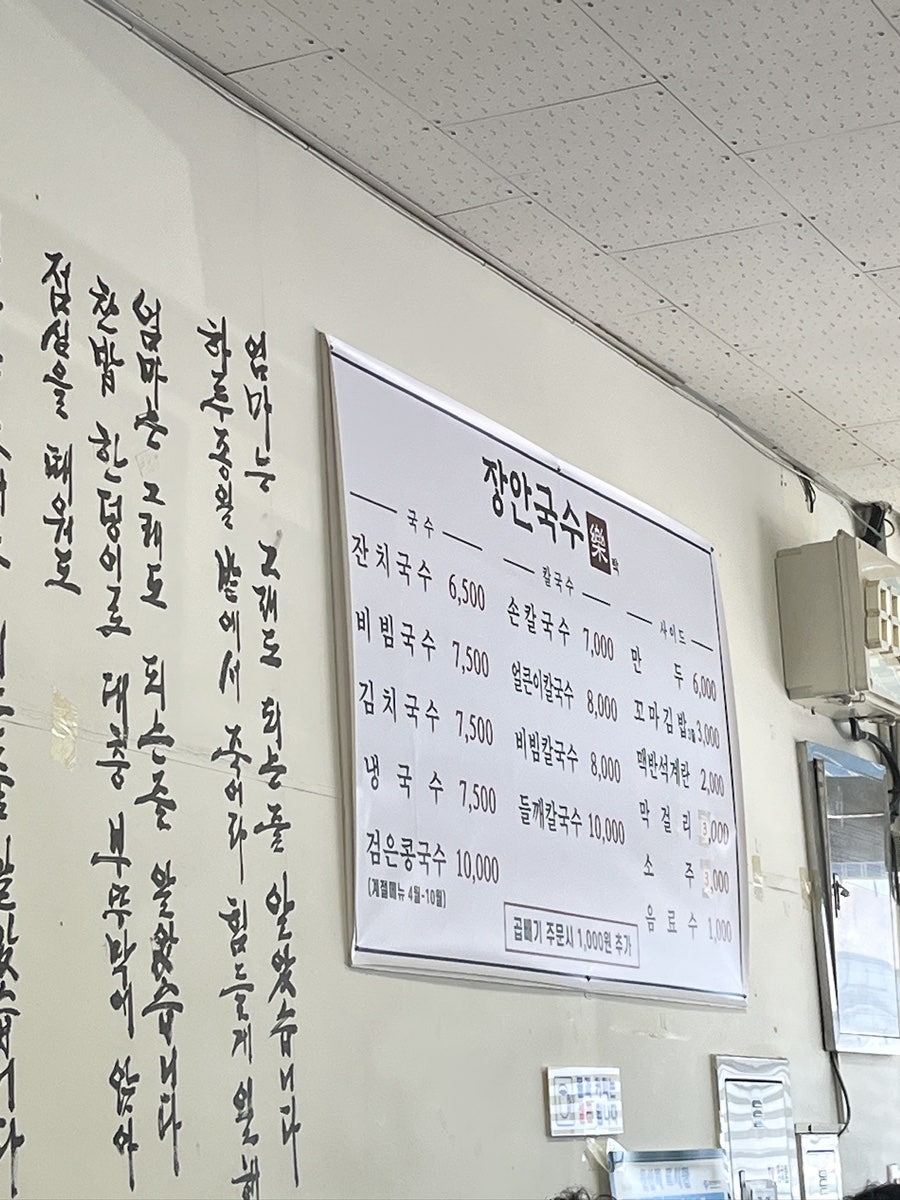 엄마는 그래도 되는줄 알았습니다
하루종일 밭에서 죽어라 힘들게 일해
엄마는 그래도 되는줄 알았습니다
찬밥 한덩이로 대충 부뚜막에 앉아
점심을 때워도
장안국수 樂
국수
잔치국수 6,500
비빔국수 7,500
김치국수 7,500
냉국수 7,500
검은콩국수 10,000
(계절메뉴 4월-10월)
칼국수
손칼국수 7,000
얼큰이칼국수 8,000
비빔칼국수 8,000
들깨칼국수 10,000
사이드
만두 6,000
꼬마김밥 3줄 3,000
맥반석계란 2,000
막걸리 3,000
소주 3,000
음료수 1,000
곱빼기 주문시 1,000원 추가